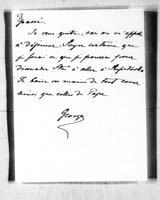 passé.
Je vous quitte, car on m'appelle
à déjeuner. Soyez certaine que
je ferai ce que je pourrai pour
à aller à
Je baise vos mains de tout cœur
ainsi que celles de
Georges